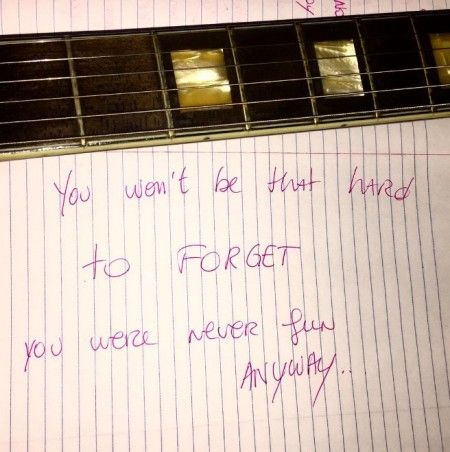 You won't be that hard
to FORGET
you were never fun
ANYWAY..